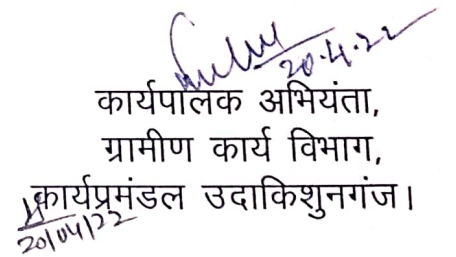 20.4.22
कार्यपालक अभियंता,
ग्रामीण कार्य विभाग,
कार्यप्रमंडल उदाकिशुनगंज।
20/04/22